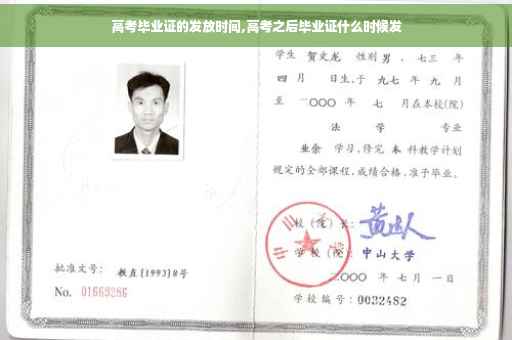 高考毕业证的发放时间,高考之后毕业证什么时候发
学生 贺文龙 性别 男 、七三 年
四 月 日生,于 九七 年 九 月
至 二〇〇〇 年 七 月在本校(院)
法 学 专业
业余 学习,修完 本 科教学计划
规定的全部课程,成绩合格,准予毕业。
校(院)长:
学校(院): 中山大学
二〇〇〇 年 七 月 一 日
学校编号: 0032482
批准文号: 教直[1993]8号
No. 01669286